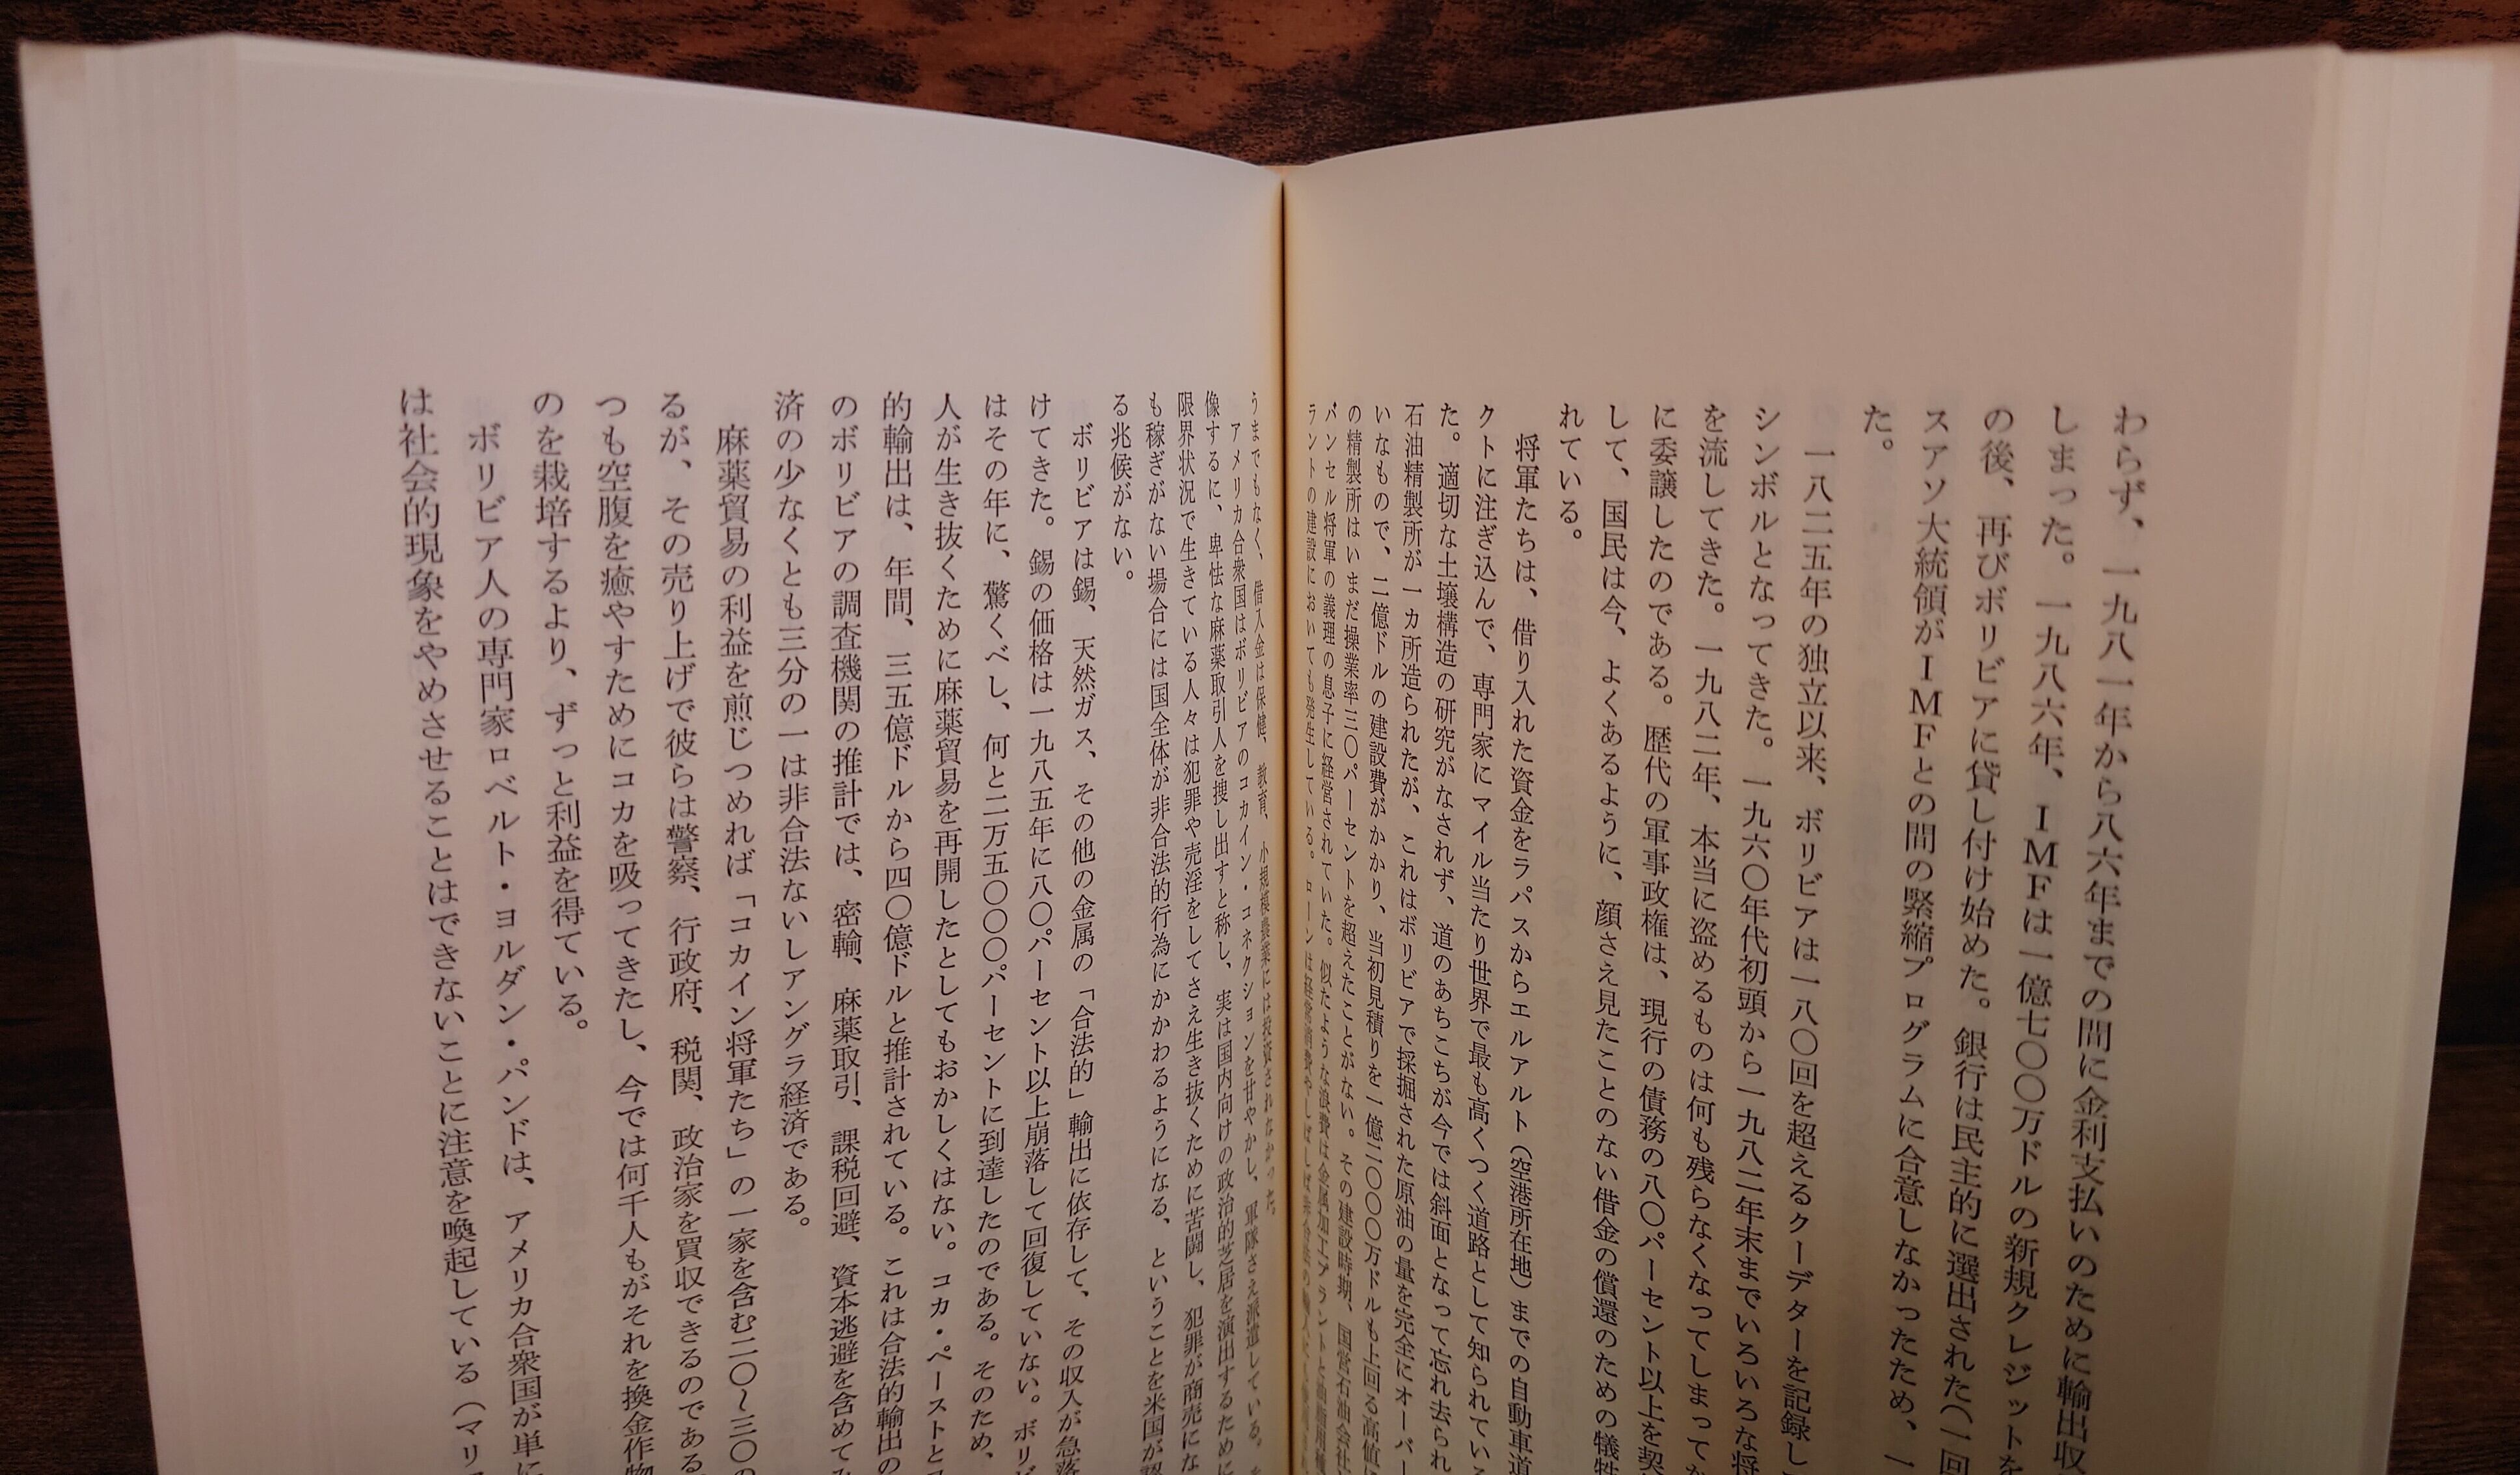 わらず、一九八一年から八六年までの間に金利支払いのために輸出収
しまった。一九八六年、IMFは一億七〇〇万ドルの新規クレジットを
の後、再びボリビアに貸し付け始めた。銀行は民主的に選出された(一回
スアソ大統領がIMFとの間の緊縮プログラムに合意しなかったため、一
た。
一八二五年の独立以来、ボリビアは一八〇回を超えるクーデターを記録し
シンボルとなってきた。一九六〇年代初頭から一九八二年末までいろいろな将
を流してきた。一九八二年、本当に盗めるものは何も残らなくなってしまって
に委譲したのである。歴代の軍事政権は、現行の債務の八〇パーセント以上を契
して、国民は今、よくあるように、顔さえ見たことのない借金の償還のための犠牲
れている。
将軍たちは、借り入れた資金をラパスからエルアルト(空港所在地)までの自動車道
クトに注ぎ込んで、専門家にマイル当たり世界で最も高くつく道路として知られてい
た。適切な土壌構造の研究がなされず、道のあちこちが今では斜面となって忘れ去られ
石油精製所が一カ所造られたが、これはボリビアで採掘された原油の量を完全にオーバー
いなもので、二億ドルの建設費がかかり、当初見積りを一億二〇〇〇万ドルも上回る高値に
の精製所はいまだ操業率三〇パーセントを超えたことがない。その建設時期、国営石油会社
バンセル将軍の義理の息子に経営されていた。似たような浪費は金属加工プラントと
ラントの建設においても発生している。ローンは
うまでもなく、借入金は保健、教育、小規模農業には投資されなかった。
アメリカ合衆国はボリビアのコカイン・コネクションを甘やかし、軍隊さえ派遣している。
像するに、卑怯な麻薬取引人を捜し出すと称し、実は国内向けの政治的芝居を演出するために
限界状況で生きている人々は犯罪や売淫をしてさえ生き抜くために苦闘し、犯罪が商売にな
も稼ぎがない場合には国全体が非合法的行為にかかわるようになる、ということを米国が認
る兆候がない。
ボリビアは錫、天然ガス、その他の金属の「合法的」輸出に依存して、その収入が急落
けてきた。錫の価格は一九八五年に八〇パーセント以上崩落して回復していない。ボリビ
はその年に、驚くべし、何と二万五〇〇〇パーセントに到達したのである。そのため、
人が生き抜くために麻薬貿易を再開したとしてもおかしくはない。コカ・ペーストと
的輸出は、年間、三五億ドルから四〇億ドルと推計されている。これは合法的輸出の
のボリビアの調査機関の推計では、密輸、麻薬取引、課税回避、資本逃避を含めて
済の少なくとも三分の一は非合法ないしアングラ経済である。
麻薬貿易の利益を煎じつめれば「コカイン将軍たち」の一家を含む二〇〜三〇の
るが、その売り上げで彼らは警察、行政府、税関、政治家を買収できるのである
つも空腹を癒やすためにコカを吸ってきたし、今では何千人もがそれを換金作物
のを栽培するより、ずっと利益を得ている。
ボリビア人の専門家ロベルト・ヨルダン・パンドは、アメリカ合衆国が単に
は社会的現象をやめさせることはできないことに注意を喚起している(マリ